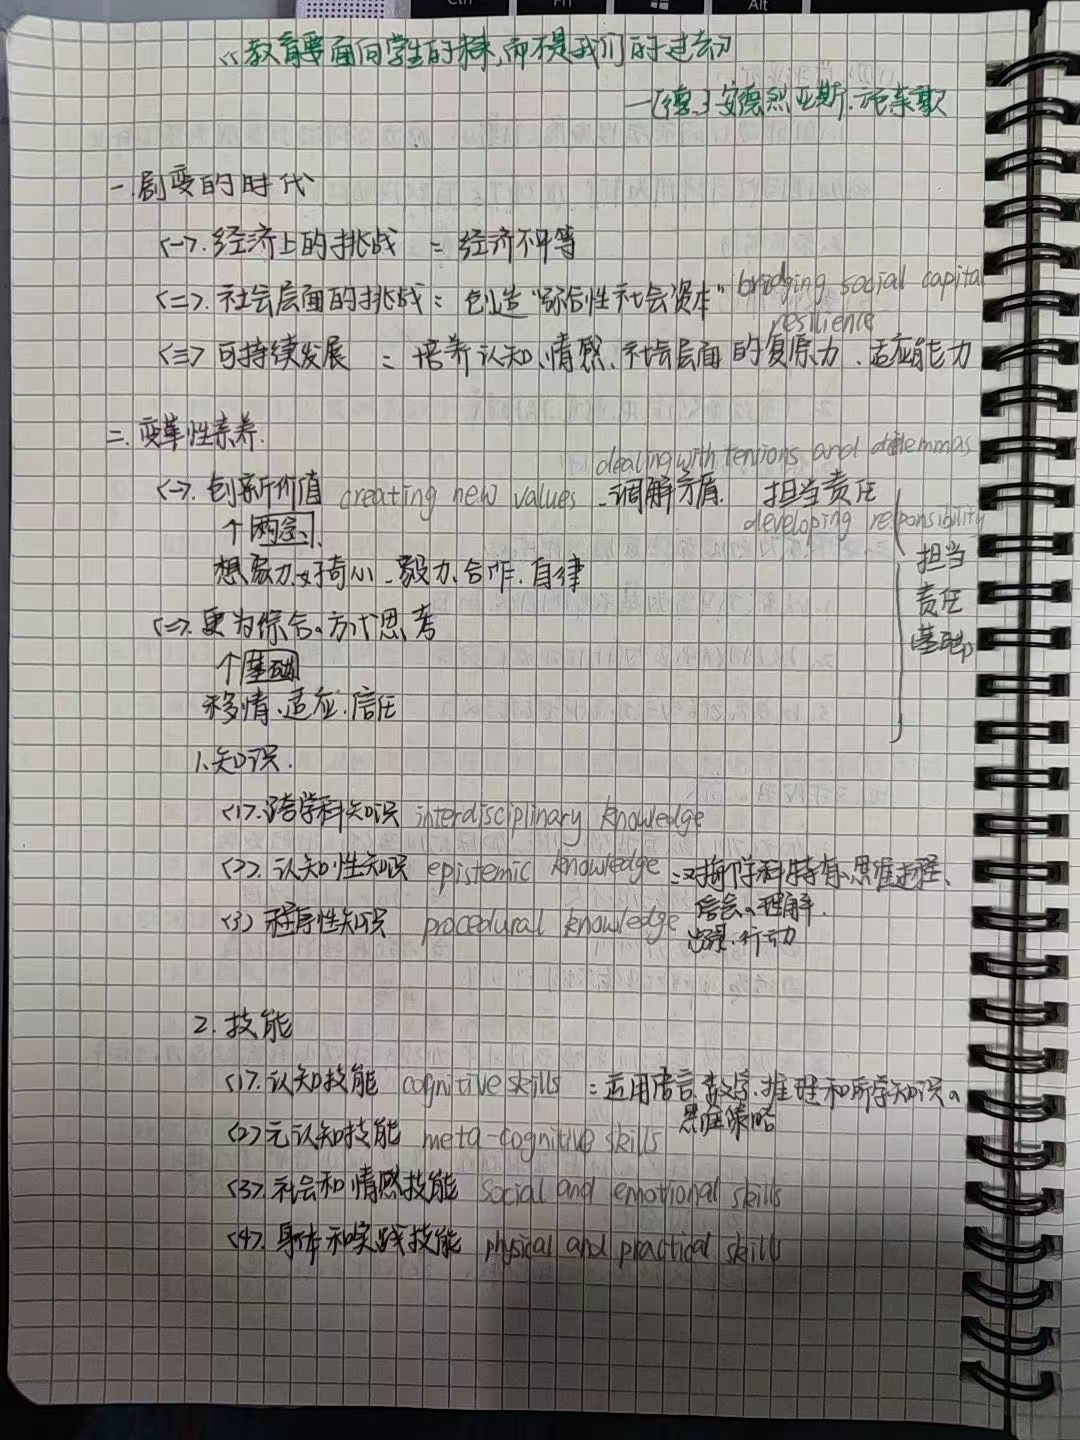 Ctrl Fn Alt
《教育要面向学生的未来,而不是我们的过去》
—[德]安德烈亚斯·施莱歇
一.剧变的时代
<一>.经济上的挑战 = 经济不平等
<二>.社会层面的挑战: 创造“弥合性社会资本” bridging social capital
resilience
<三>可持续发展 = 培养认知、情感、社会层面的复原力、适应能力
二.变革性素养.
dealing with tensions and dilemmas
<一>.创新价值 creating new values 调解矛盾. 担当责任
developing responsibility
个
想象力、好奇心、毅力、合作、自律
担当
责任
基础
<二>.更为综合の方式思考
个基础
移情、适应、信任
1.知识.
<1>.跨学科知识 interdisciplinary knowledge
<2>.认知性知识 epistemic knowledge =对 学科特有の思维过程、
信念の理解.
(3)程序性知识 procedural knowledge
步骤、行动
2.技能
<1>.认知技能 cognitive skills =应用语言、数字、推理和所学知识の
思维策略
(2)元认知技能 meta-cognitive skills
<3>.社会和情感技能 social and emotional skills
<4>.身体和实践技能 physical and practical skills